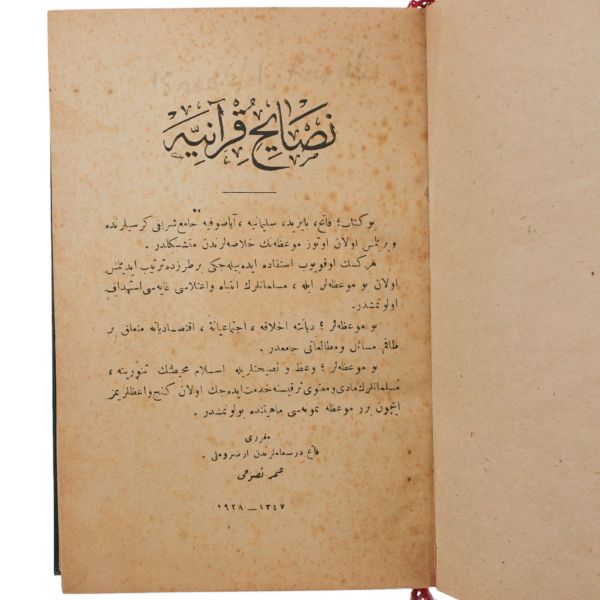 نصايح قرآنيه
بو كتاب ؛ فاتح ، بايزيد ، سليمانيه ، آياصوفيه جامع شريفى كرسيلرنده
ويريلمش اولان اوتوز موعظه‌نك خلاصه‌لرندن متشكلدر .
هركسك اوقويوب استفاده ايده‌بيله‌جكى بر طرزده ترتيب ايديلمش
اولان بو موعظه‌لر ايله ، مسلمانلرك انتباه واعتلاسى غايه‌سى استهداف
اولونمشدر .
بو موعظه‌لر ؛ ديانته اخلاقه ، اجتماعياته ، اقتصادياته متعلق بر
طاقم مسائل ومطالعاتى جامعدر .
بو موعظه‌لر ؛ وعظ و نصيحتلريله اسلام محيطنك تنويرينه ،
مسلمانلرك مادى ومعنوى ترقيسنه خدمت ايده‌جك اولان كنج واعظلريمز
ايچون برر موعظه نمونه‌سى ماهيتنده بولونمشدر .
مقررى
فاتح درسعاملرندن ارضروملى
عمر نصوحى
١٣٤٧ — ١٩٢٨